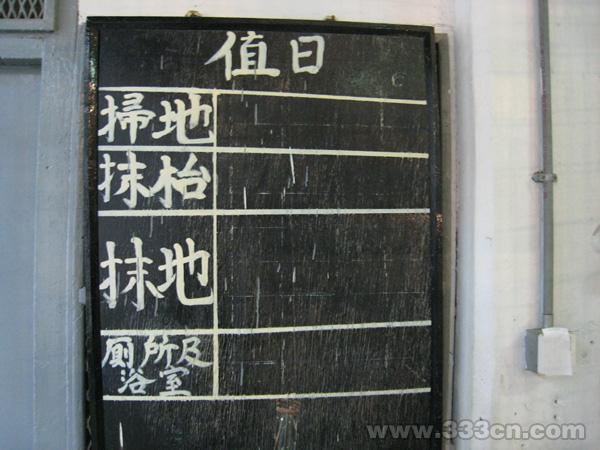 值日
掃地
抹枱
抹地
廁所及
浴室
www.333cn.com